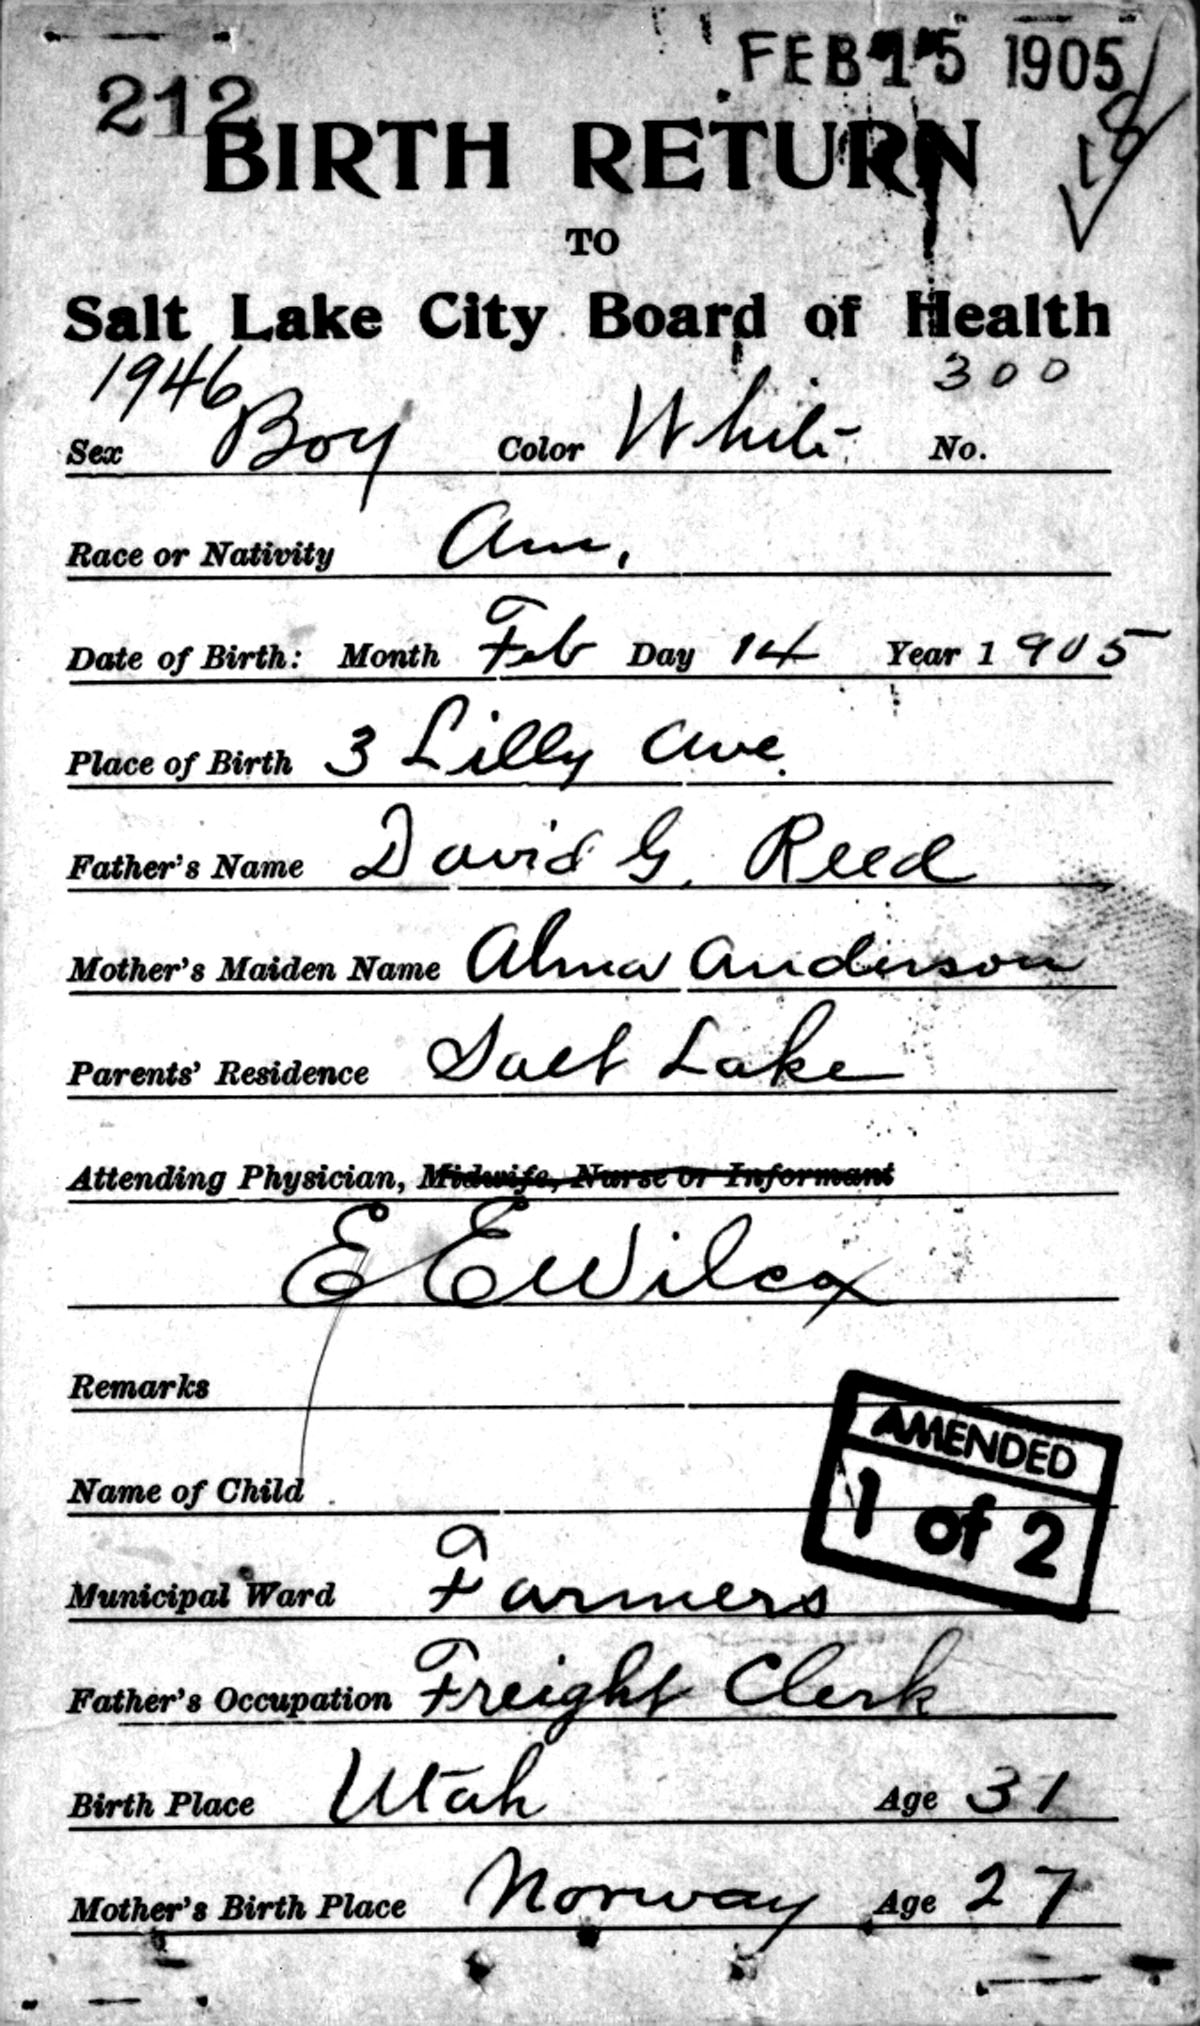 FEB 15 1905
212
18
BIRTH RETURN
TO
Salt Lake City Board of Health
1946 300
Sex Boy Color White No.
Race or Nativity Am.
Date of Birth: Month Feb Day 14 Year 1905
Place of Birth 3 Lilly Ave.
Father's Name David G. Reed
Mother's Maiden Name Alma Anderson
Parents' Residence Salt Lake
Attending Physician, Midwife, Nurse or Informant
E E Wilcox
Remarks
AMENDED
1 of 2
Name of Child
Municipal Ward Farmers
Father's Occupation Freight Clerk
Birth Place Utah Age 31
Mother's Birth Place Norway Age 27